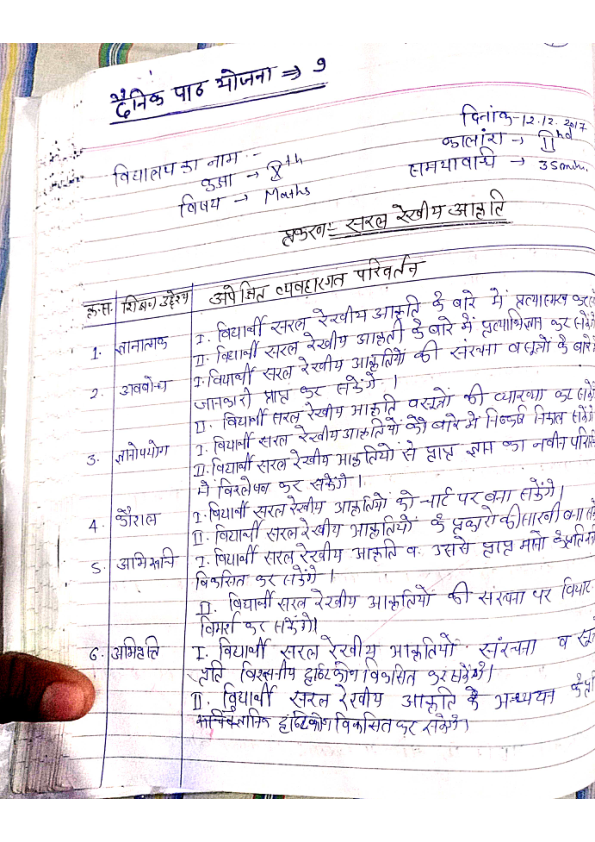 दैनिक पाठ योजना ⇒ 9
दिनांक-12.12.2017
विद्यालय का नाम :-
कालांश → IInd
कक्षा → 8th
समयावधि → 35 min.
विषय → Maths
प्रकरण:- सरल रेखीय आकृति
क्र.स. शिक्षण उद्देश्य अपेक्षित व्यवहारगत परिवर्तन
1. ज्ञानात्मक I. विद्यार्थी सरल रेखीय आकृति के बारे में प्रत्यास्मरण कर
II. विद्यार्थी सरल रेखीय आकृती के बारे में प्रत्याभिज्ञान कर सकेंगे
2. अवबोध I. विद्यार्थी सरल रेखीय आकृतियों की संरचना व सूत्रों के बारे
जानकारी प्राप्त कर सकेंगे ।
II. विद्यार्थी सरल रेखीय आकृति व सूत्रों की व्याख्या कर सकेंगे
3. ज्ञानोपयोग I. विद्यार्थी सरल रेखीय आकृतियों के बारे में निष्कर्ष निकाल सकेंगे
II. विद्यार्थी सरल रेखीय आकृतियों से प्राप्त ज्ञान का नवीन
में विश्लेषण कर सकेंगे ।
4. कौशल I. विद्यार्थी सरल रेखीय आकृतियों को चार्ट पर बना सकेंगे।
II. विद्यार्थी सरल रेखीय आकृतियों के प्रकारो की सारणी बना
5. अभिरूचि I. विद्यार्थी सरल रेखीय आकृति व उससे प्राप्त
विकसित कर सकेंगे ।
II. विद्यार्थी सरल रेखीय आकृतियों की संरचना पर विचार-
विमर्श कर सकेंगे।
6. अभिवृत्ति I. विद्यार्थी सरल रेखीय आकृतियों संरचना व
प्रति विश्वसनीय दृष्टिकोण विकसित कर सकेंगे।
II. विद्यार्थी सरल रेखीय आकृति के अध्ययन के
दृष्टिकोण विकसित कर सकेंगे।